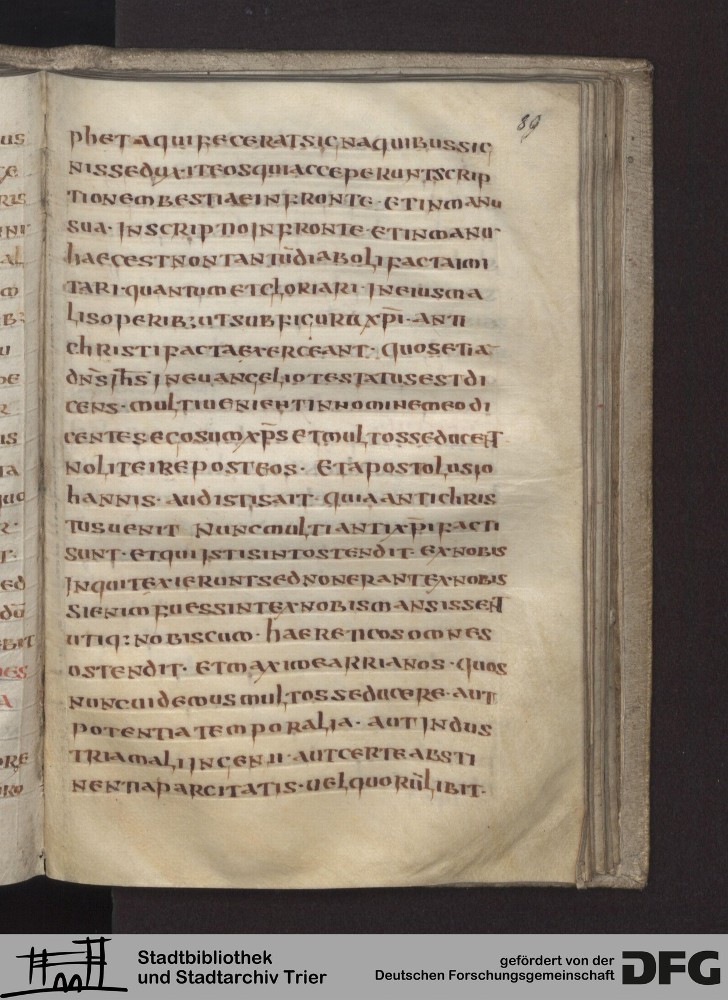 89
phetaquifeceratsignaquibussig
nisseduxiteosquiacceperuntscrip
tionembestiaeinfronte·etinmanu
sua·inscriptioinfronteetinmanu·
haecestnontantūdiabolifactaimi
tari·quantumetgloriari·ineiusma
lisoperib;utsubfiguraxp̄i·anti
christifactaexerceant·quosetia
dn̄sih̄sineuangeliotestatusestdi
cens·multiuenientinnominemeodi
centesegosumxp̄setmultosseducent
noliteireposteos·etapostolusio
hannis·audistisait·quiaantichris
tusuenit nuncmultiantixp̄ifacti
sunt·etquiistisintostendit·exnobis
inquitexieruntsednonerantexnobis
sienimfuessintexnobismansissent
utiq:nobiscum·haereticosomnes
ostendit·etmaximearrianos·quos
nuncuidemusmultosseducere·aut
potentiatemporalia·autindus
triamaliingenii·autcerteabsti
nentiaparcitatis·uelquorūlibit·
Stadtbibliothek
und Stadtarchiv Trier
gefördert von der
Deutschen Forschungsgemeinschaft
DFG